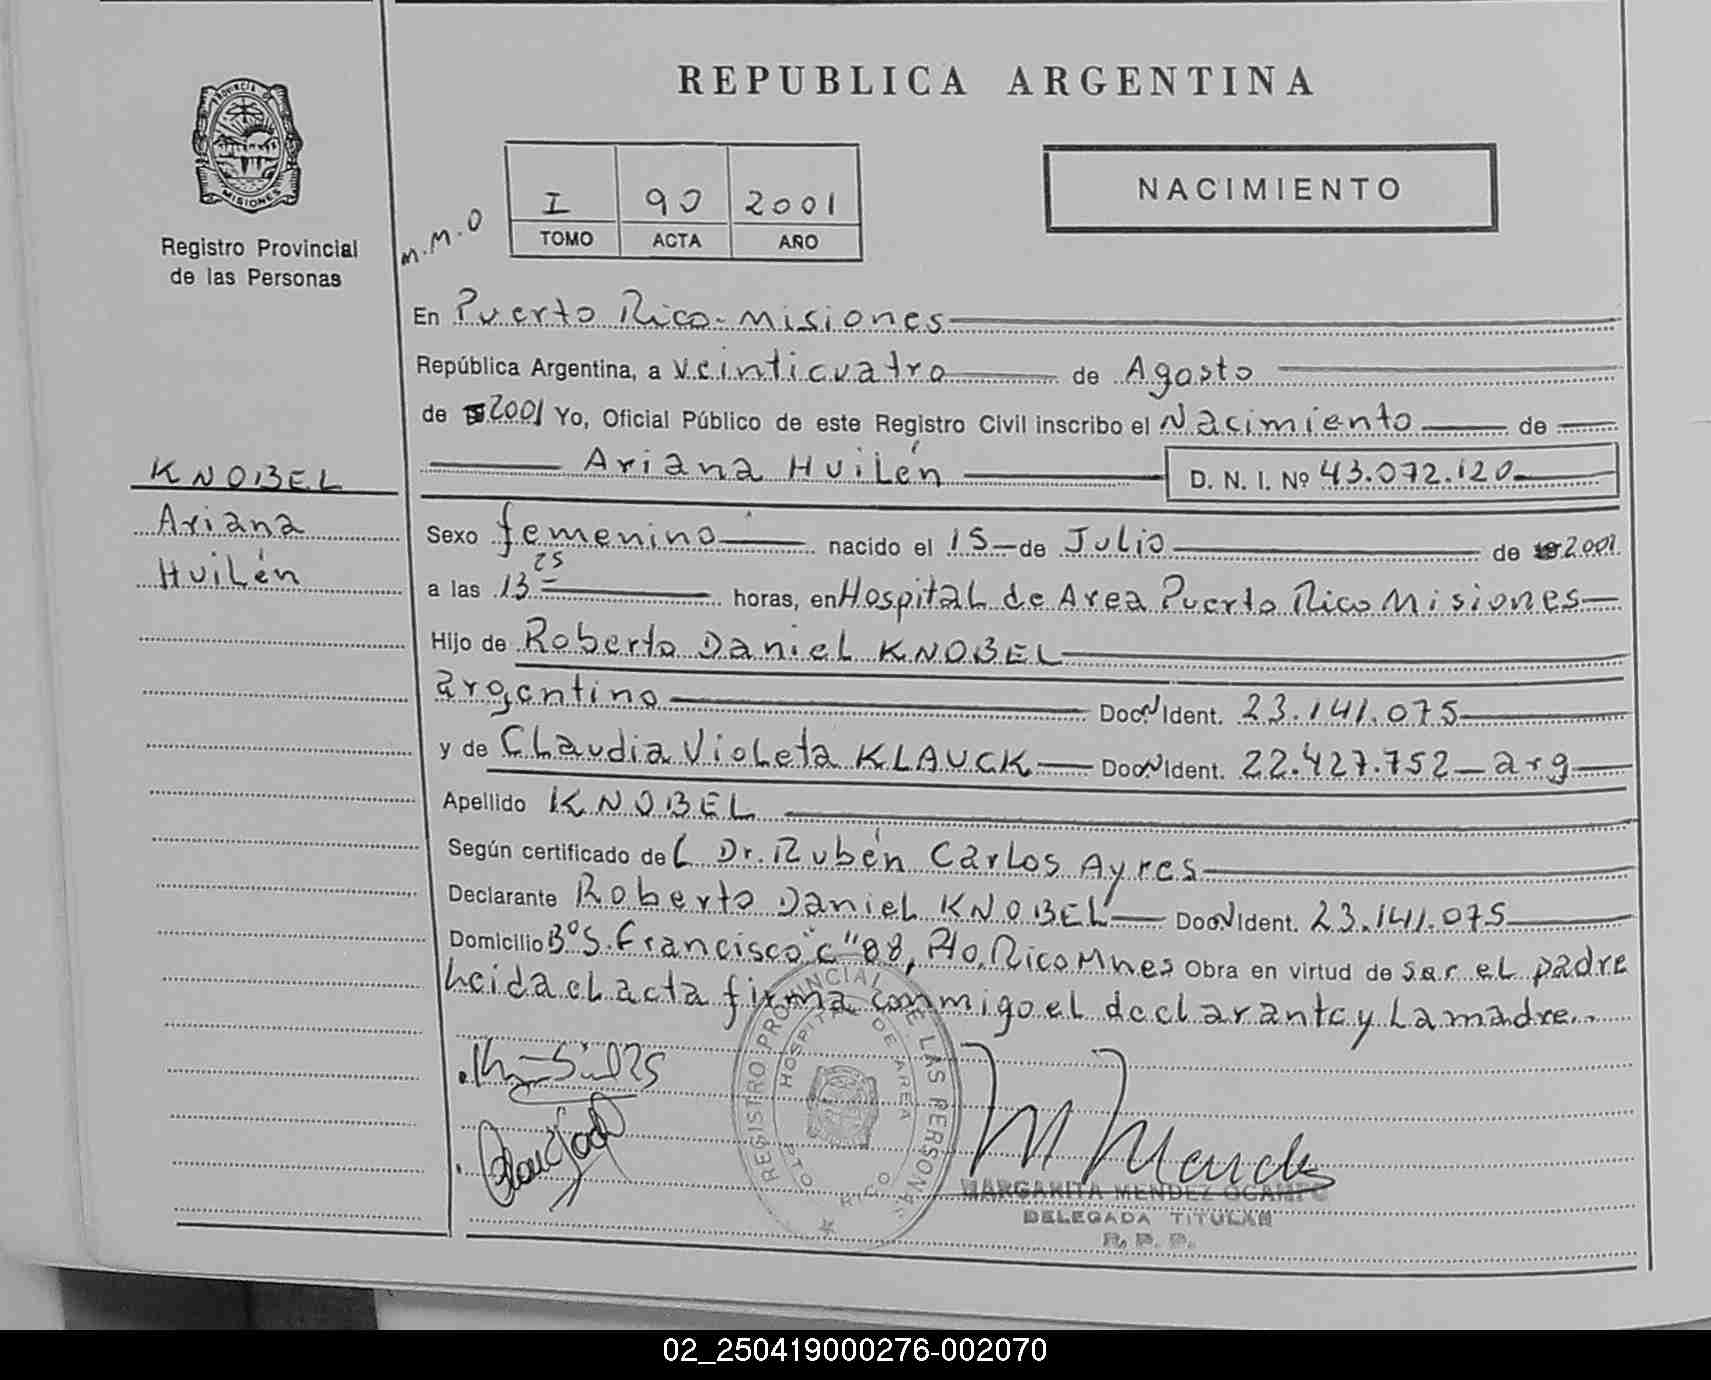 REPUBLICA ARGENTINA
PROVINCIA DE
MISIONES
Registro Provincial
de las Personas
M.M.O
I 90 2001
TOMO ACTA AÑO
NACIMIENTO
En Puerto Rico - Misiones
República Argentina, a veinticuatro de Agosto
de 2001 Yo, Oficial Público de este Registro Civil inscribo el Nacimiento de
Ariana Huilén D. N. I. Nº 43.072.120
KNOBEL
Ariana
Huilén
Sexo femenino nacido el 15 de Julio de 2001
a las 13 25 horas, en Hospital de Area Puerto Rico Misiones
Hijo de Roberto Daniel KNOBEL
argentino Doc. Ident. 23.141.075
y de Claudia Violeta KLAUCK Doc. Ident. 22.427.752 - arg
Apellido KNOBEL
Según certificado del Dr. Rubén Carlos Ayres
Declarante Roberto Daniel KNOBEL Doc. Ident. 23.141.075
Domicilio Bº S. Francisco "C" 88, Pto. Rico Mnes Obra en virtud de ser el padre
Leida el acta firma conmigo el declarante y la madre..
REGISTRO PROVINCIAL DE LAS PERSONAS
HOSPITAL DE AREA
PTO RICO
MARGARITA MENDEZ OCAMPO
DELEGADA TITULAR
R. P. P.
02_250419000276-002070